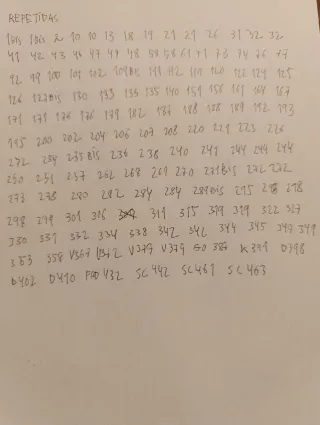 REPETIDAS
1BIS 1BIS 2 10 10 13 18 19 21 21 26 31 32 32
41 42 43 46 47 47 48 58 58 61 71 73 74 76 77
92 98 100 101 102 104BIS 111 112 119 120 122 124 125
126 127BIS 130 133 135 135 140 151 158 161 167 167
171 171 176 176 179 182 187 188 188 189 192 193
195 200 202 204 206 207 208 220 221 223 226
272 234 235BIS 236 238 240 241 244 244 244
250 251 257 262 268 269 270 271BIS 272 272
273 278 280 282 284 284 289BIS 295 298 298
298 299 301 306 311 315 319 319 322 327
330 331 332 334 338 342 342 344 345 349 349
353 358 V367 V372 V379 V379 387 K391 D398
D402 D410 432 SC442 SC461 SC463